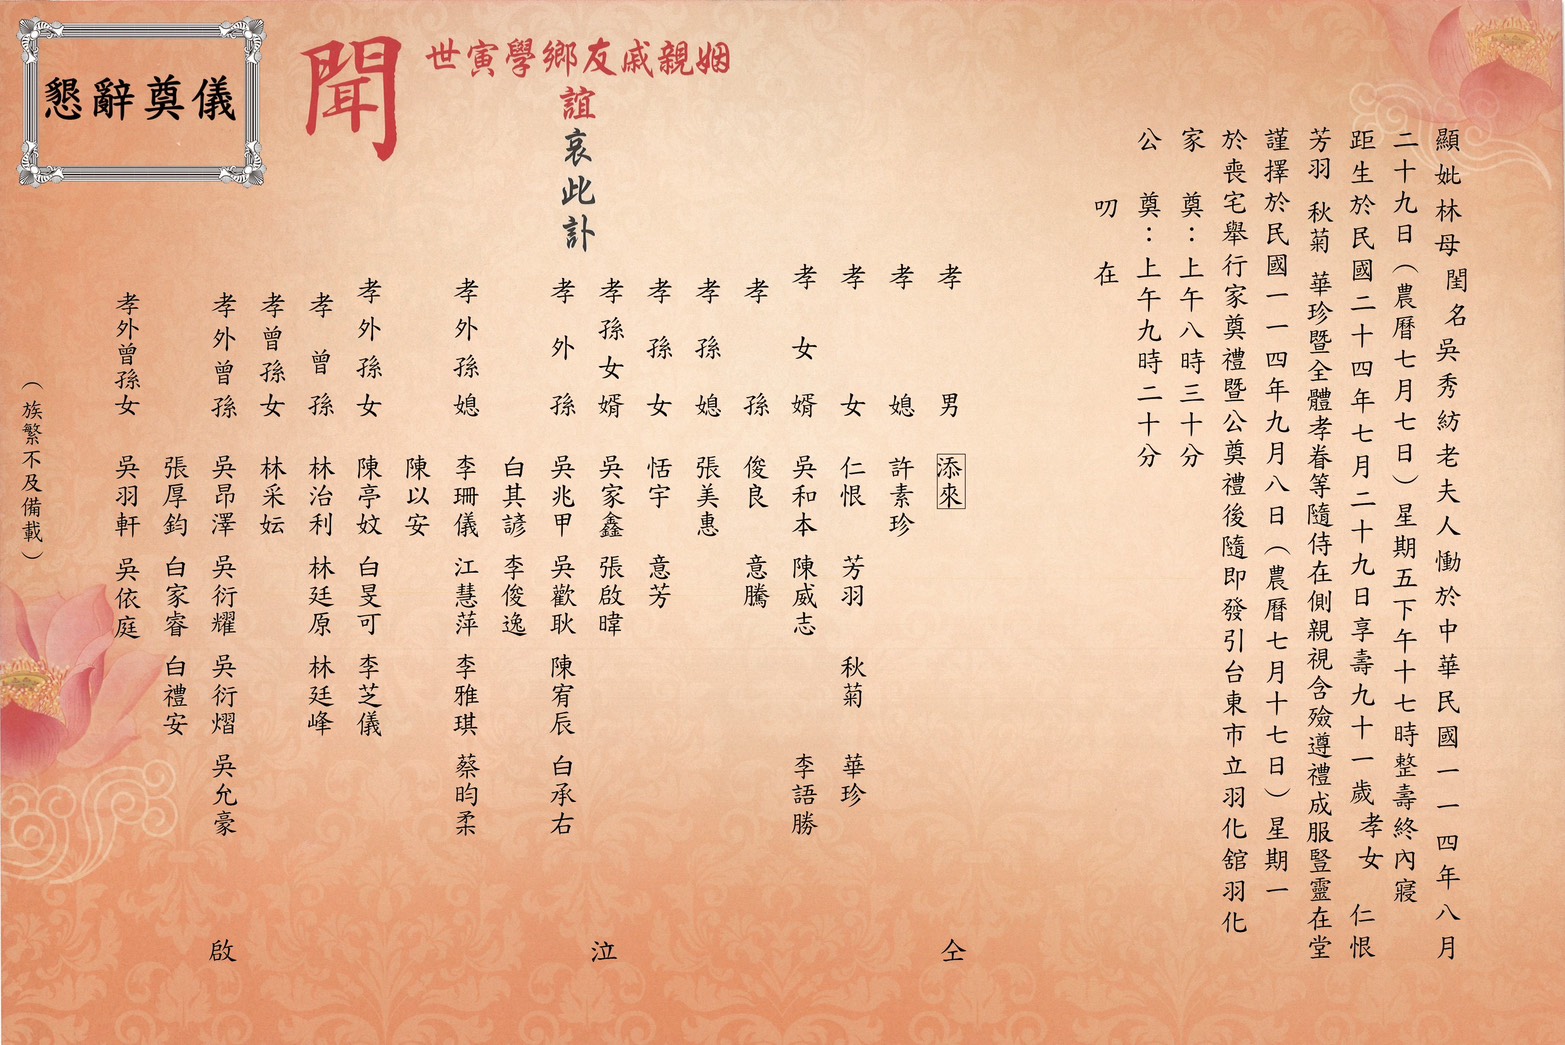 顯妣林母閨名吳秀紡老夫人慟於中華民國一一四年八月
二十九日（農曆七月七日）星期五下午十七時整壽終內寢
距生於民國二十四年七月二十九日享壽九十一歲孝女 仁恨
芳羽 秋菊 華珍暨全體孝眷等隨侍在側親視含殮遵禮成服豎靈在堂
謹擇於民國一一四年九月八日（農曆七月十七日）星期一
於喪宅舉行家奠禮暨公奠禮後隨即發引台東市立羽化舘羽化
家 奠：上午八時三十分
公 奠：上午九時二十分
叨 在
姻親戚友鄉學寅世
誼
哀此訃
聞
懇辭奠儀
孝 男 添來
孝 媳 許素珍
孝 女 仁恨 芳羽 秋菊 華珍
孝 女 婿 吳和本 陳威志 李語勝
孝 孫 俊良 意騰
孝 孫 媳 張美惠
孝 孫 女 恬宇 意芳
孝 孫 女 婿 吳家鑫 張啟暐
孝 外 孫 吳兆甲 吳歡耿 陳宥辰 白承右
白其諺 李俊逸
孝 外 孫 媳 李珊儀 江慧萍 李雅琪 蔡昀柔
陳以安
孝 外 孫 女 陳亭妏 白旻可 李芝儀
孝 曾 孫 林治利 林廷原 林廷峰
孝 曾 孫 女 林采妘
孝 外 曾 孫 吳昂澤 吳衍耀 吳衍熠 吳允豪
張厚鈞 白家睿 白禮安
孝外曾孫女 吳羽軒 吳依庭
仝 泣 啟
（族繁不及備載）